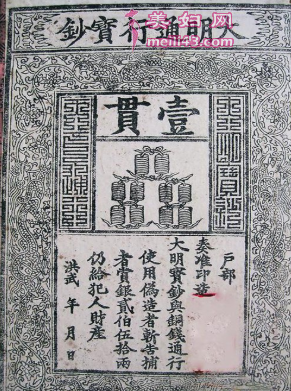 美妇网
meili43.com
大明通行寶鈔
壹貫
戶部
奏准印造
大明寶鈔與銅錢通行
使用偽造者斬告捕
者賞銀貳伯伍拾兩
仍給犯人財產
洪武 年 月 日